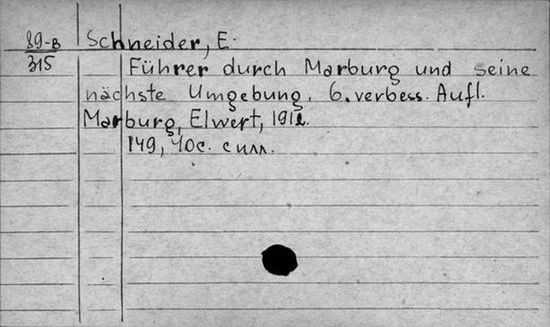 89-В Schneider, E.
315 Führer durch Marburg und seine
nächste Umgebung. 6. verbess. Aufl.
Marburg, Elwert, 1912.
149, 40 с. с илл.